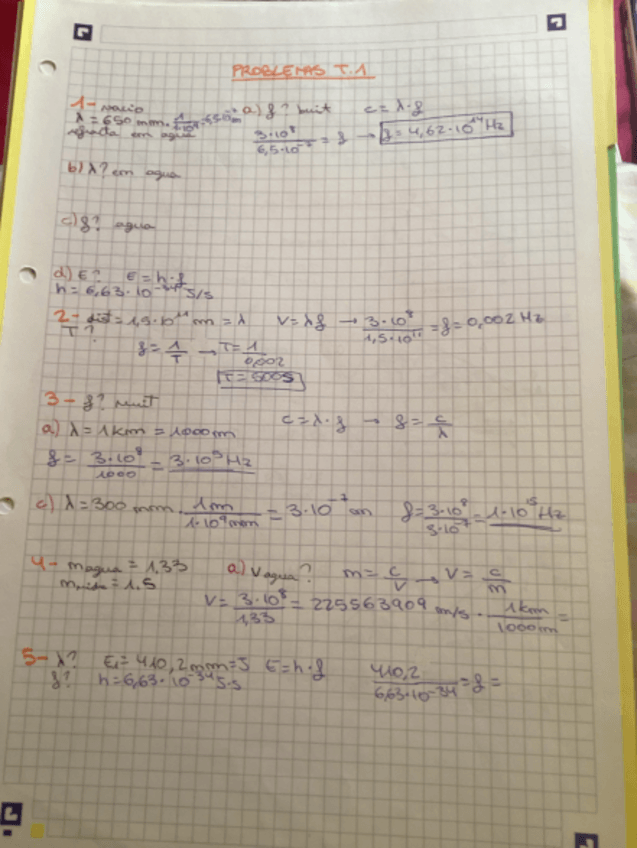 PROBLEMAS T.1
1- vacío a) f? luz c = λ·f
λ = 650 nm · = 6,5·10⁻⁷m 3·10⁸ / 6,5·10⁻⁷ = f → f = 4,62·10¹⁴ Hz
en agua
b) λ? em agua
c) f? agua
d) E? E = h·f
h = 6,63·10⁻³⁴
2- dist = 1,5·10¹¹ m = λ V = λ f → 3·10⁸ / 1,5·10¹¹ = f = 0,002 Hz
T?
f = 1/T → T = 1/0,002
T = 500s
3- f?
a) λ = 1km = 1000m c = λ·f → f = c/λ
f = 3·10⁸ / 1000 = 3·10⁵ Hz
c) λ = 300 nm · 1m / 1·10⁹ nm = 3·10⁻⁷ m f = 3·10⁸ / 3·10⁻⁷ = 1·10¹⁵ Hz
4- n agua = 1,33 a) V agua? n = c/V → V = c/n
= 1.5
V = 3·10⁸ / 1,33 = 225563909 m/s · 1km / 1000m =
5- λ? E₁ = 410,2 = J E = h·f 410,2 / 6,63·10⁻³⁴ = f =
f? h = 6,63·10⁻³⁴